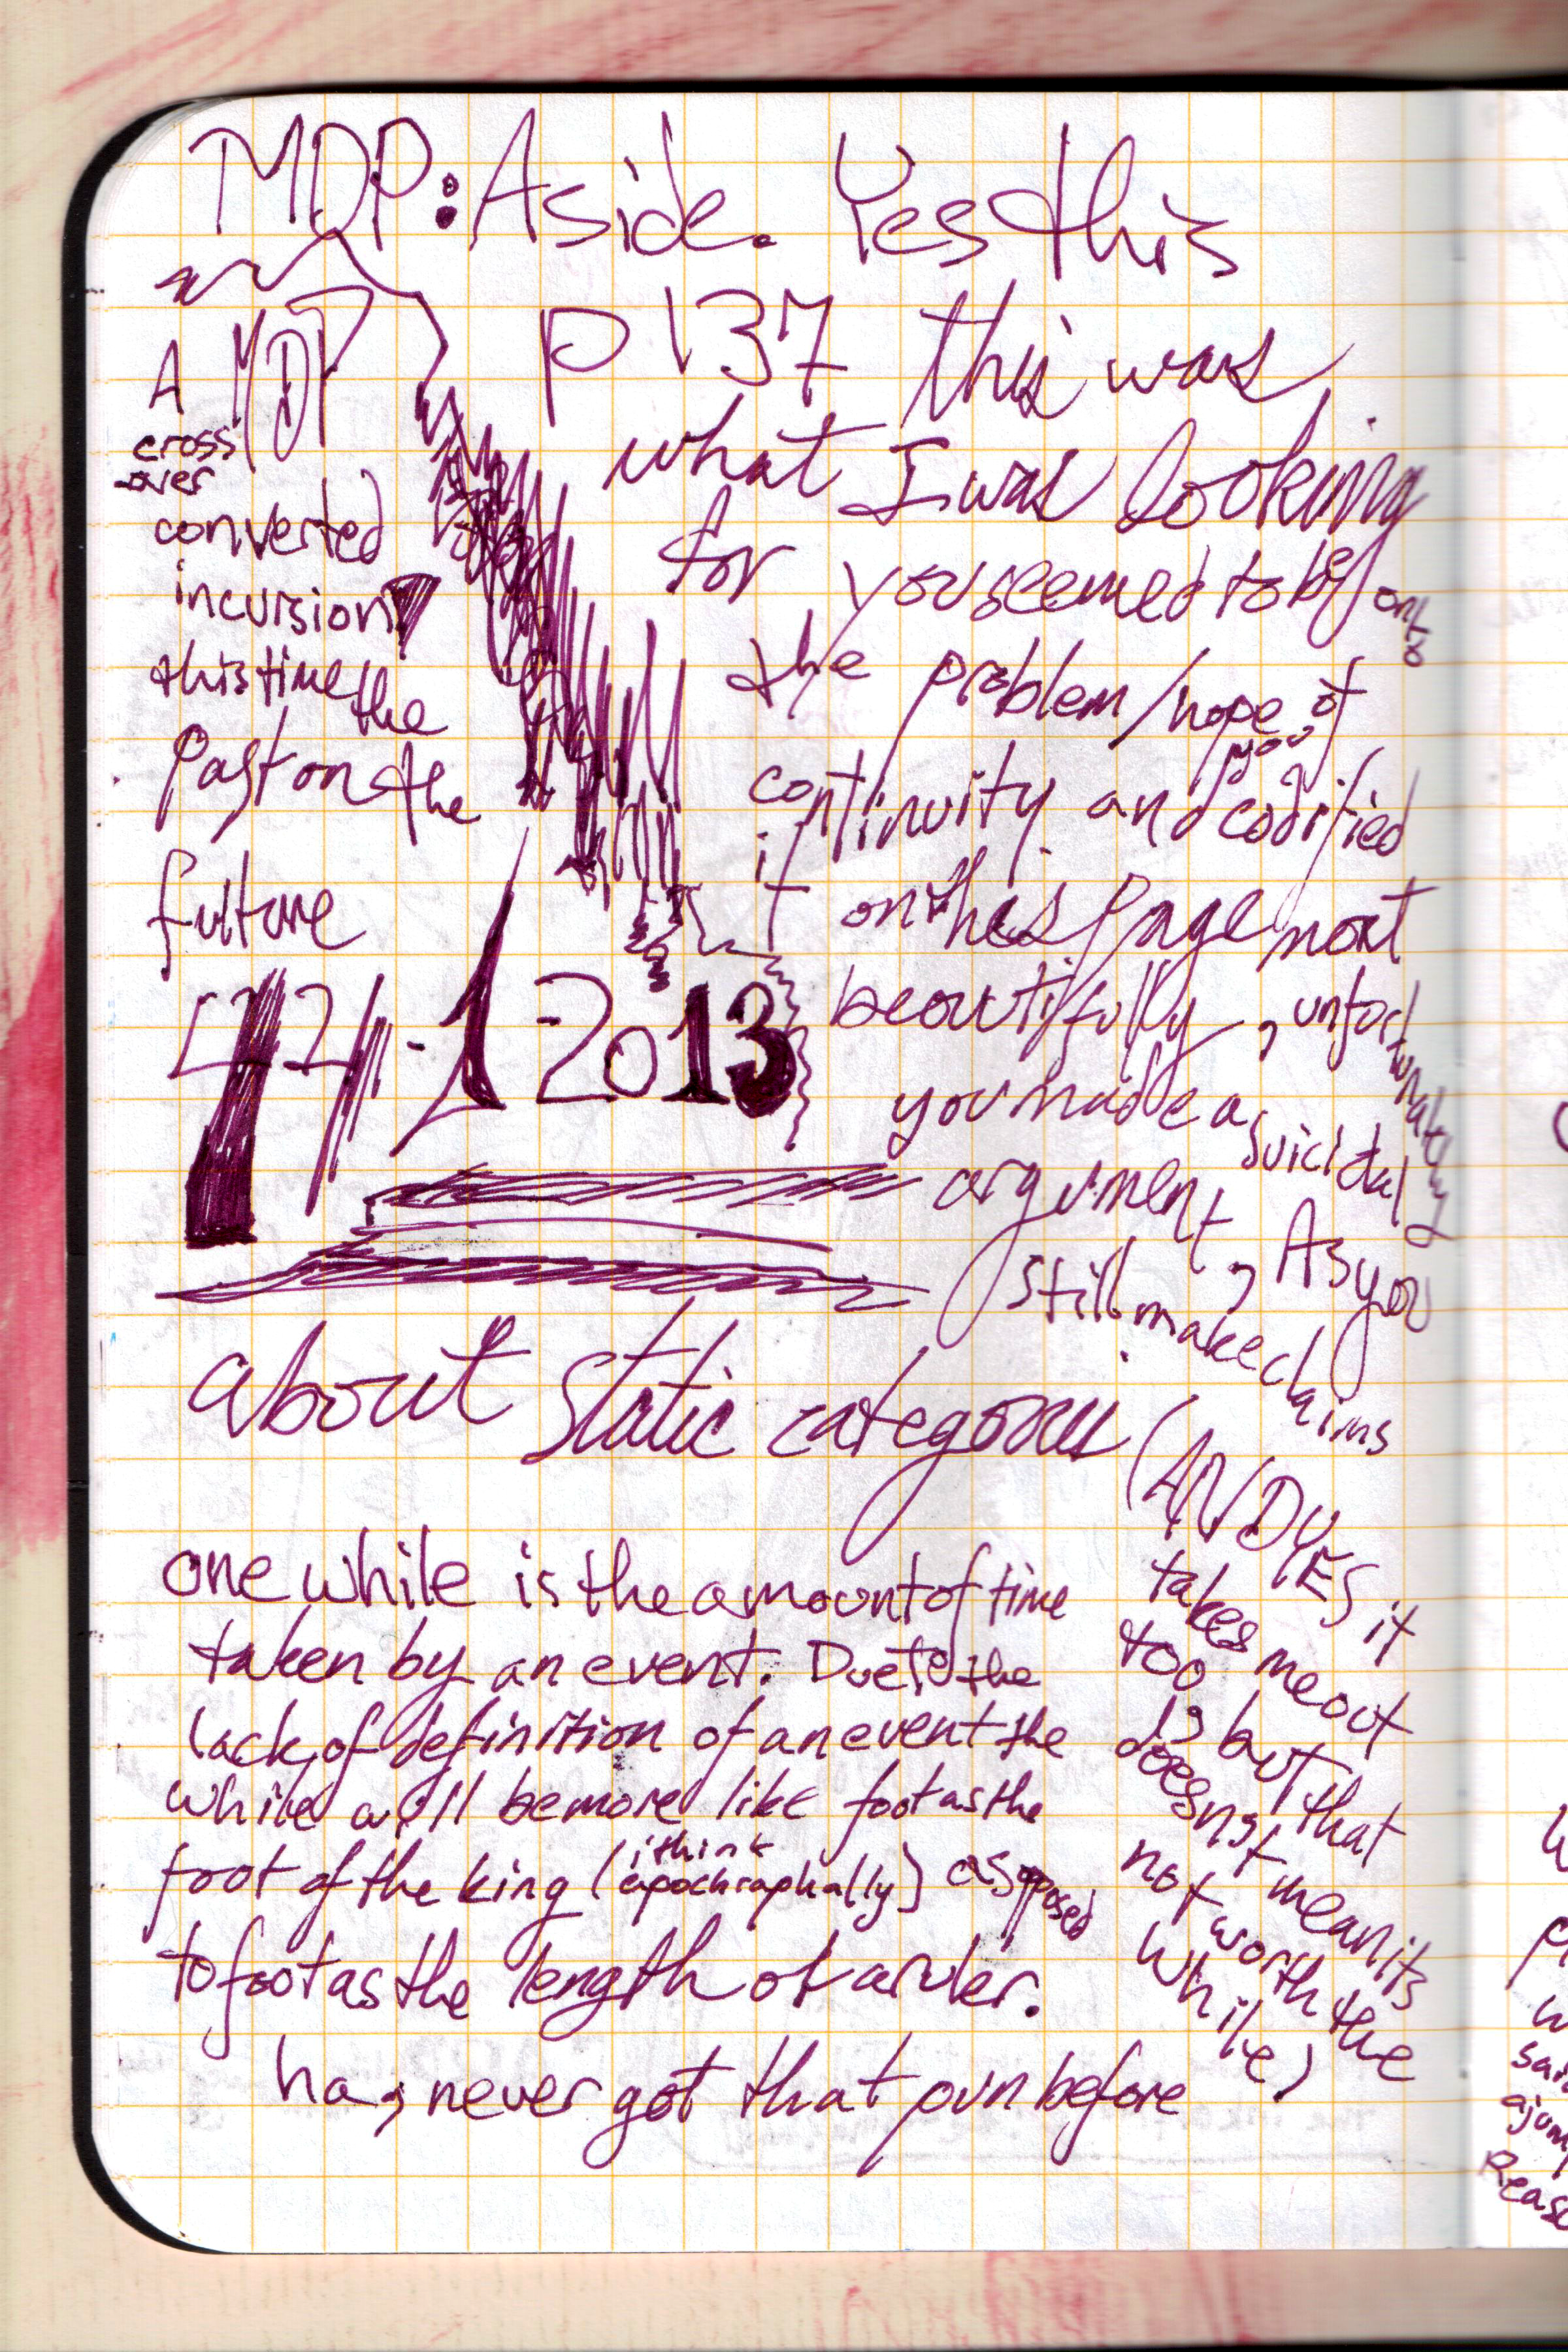 MDP: Aside. Yes this
p 137 this was
what I was looking
for you seemed to be onto
the problem/hope of
continuity and you codified
it on this page most
beautifully, unfortunately
you made a suicidal
argument, As you
still make claims
about static categories (AND YES it
takes me out
too but that
doesnt mean its
not worth the
while)
A MDP
cross
-over
converted
incursion
this time the
Past on the
future
-1-2013
one while is the amount of time
taken by an event. Due to the
lack of definition of an event the
while will be more like foot as the
foot of the king (i think apochraphally) as opposed
to foot as the length of a ruler.
ha, never got that pun before